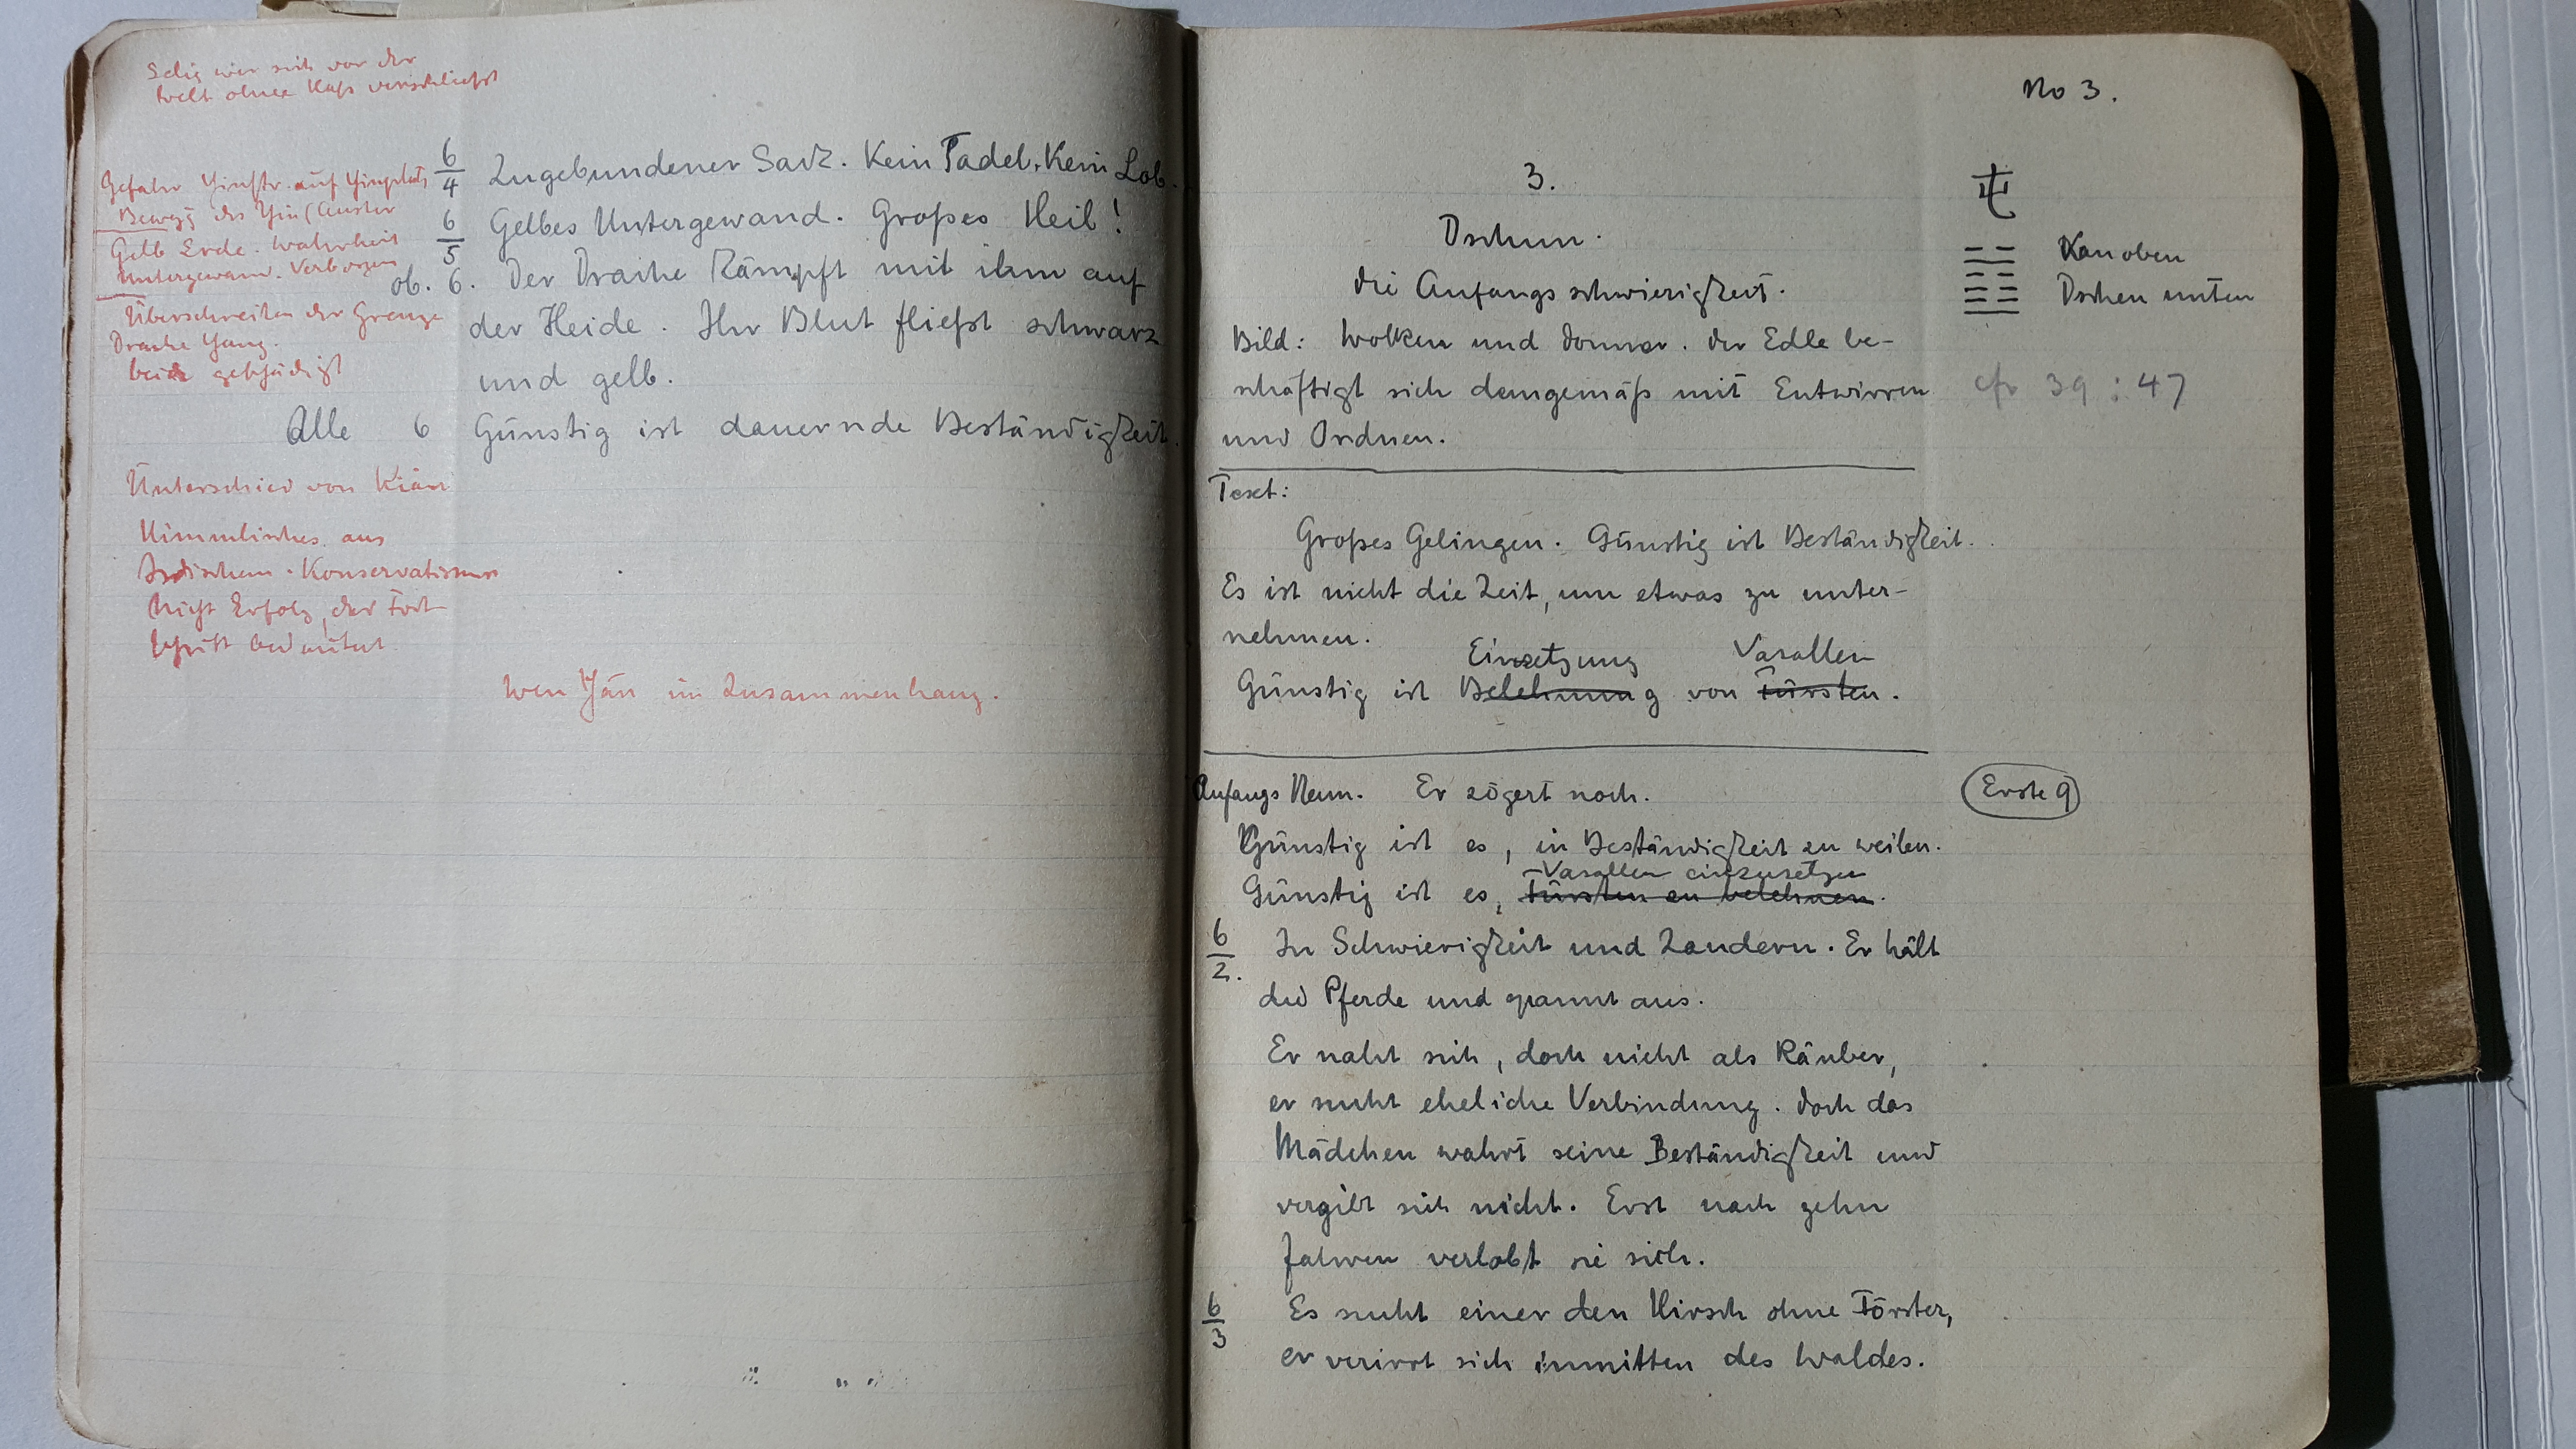 Selig wer sich vor der
Welt ohne Haß verschließt
6/4 Zugebundener Sack. Kein Tadel, Kein Lob.
Gefahr Yinstr. auf Yinplatz
Bewegg des Yin
6/5 Gelbes Untergewand. Großes Heil!
Gelb Erde. Wahrheit
Untergewand. Verborgen
ob. 6. Der Drache kämpft mit ihm auf
der Heide. Ihr Blut fließt schwarz
und gelb.
Überschreiten der Grenze
Drache Yang.
beide geschädigt
Alle 6 Günstig ist dauernde Beständigkeit.
Unterschied von Kiän
Himmlisches aus
Irdischem. Konservatismus
Nicht Erfolg, der Fort
schritt bedeutet
Wen Yän im Zusammenhang.
No 3.
3.
屯
Dschun.
Kan oben
Dschen unten
die Anfangsschwierigkeit.
Bild: Wolken und Donner. Der Edle be-
schäftigt sich demgemäß mit Entwirren
cfr 39 : 47
und Ordnen.
Text:
Großes Gelingen. Günstig ist Beständigkeit.
Es ist nicht die Zeit, um etwas zu unter-
nehmen.
Einsetzung Vasallen
Günstig ist Belehnung von Fürsten.
Anfangs Neun. Er zögert noch.
Erste 9
Günstig ist es, in Beständigkeit zu weilen.
Vasallen einzusetzen
Günstig ist es, Fürsten zu belehnen.
6/2. In Schwierigkeit und Zaudern. Er hält
die Pferde und spannt aus.
Er naht sich, doch nicht als Räuber,
er sucht eheliche Verbindung. Doch das
Mädchen wahrt seine Beständigkeit und
vergibt sich nicht. Erst nach zehn
Jahren verlobt sie sich.
6/3 Es sucht einer den Hirsch ohne Förster,
er verirrt sich inmitten des Waldes.